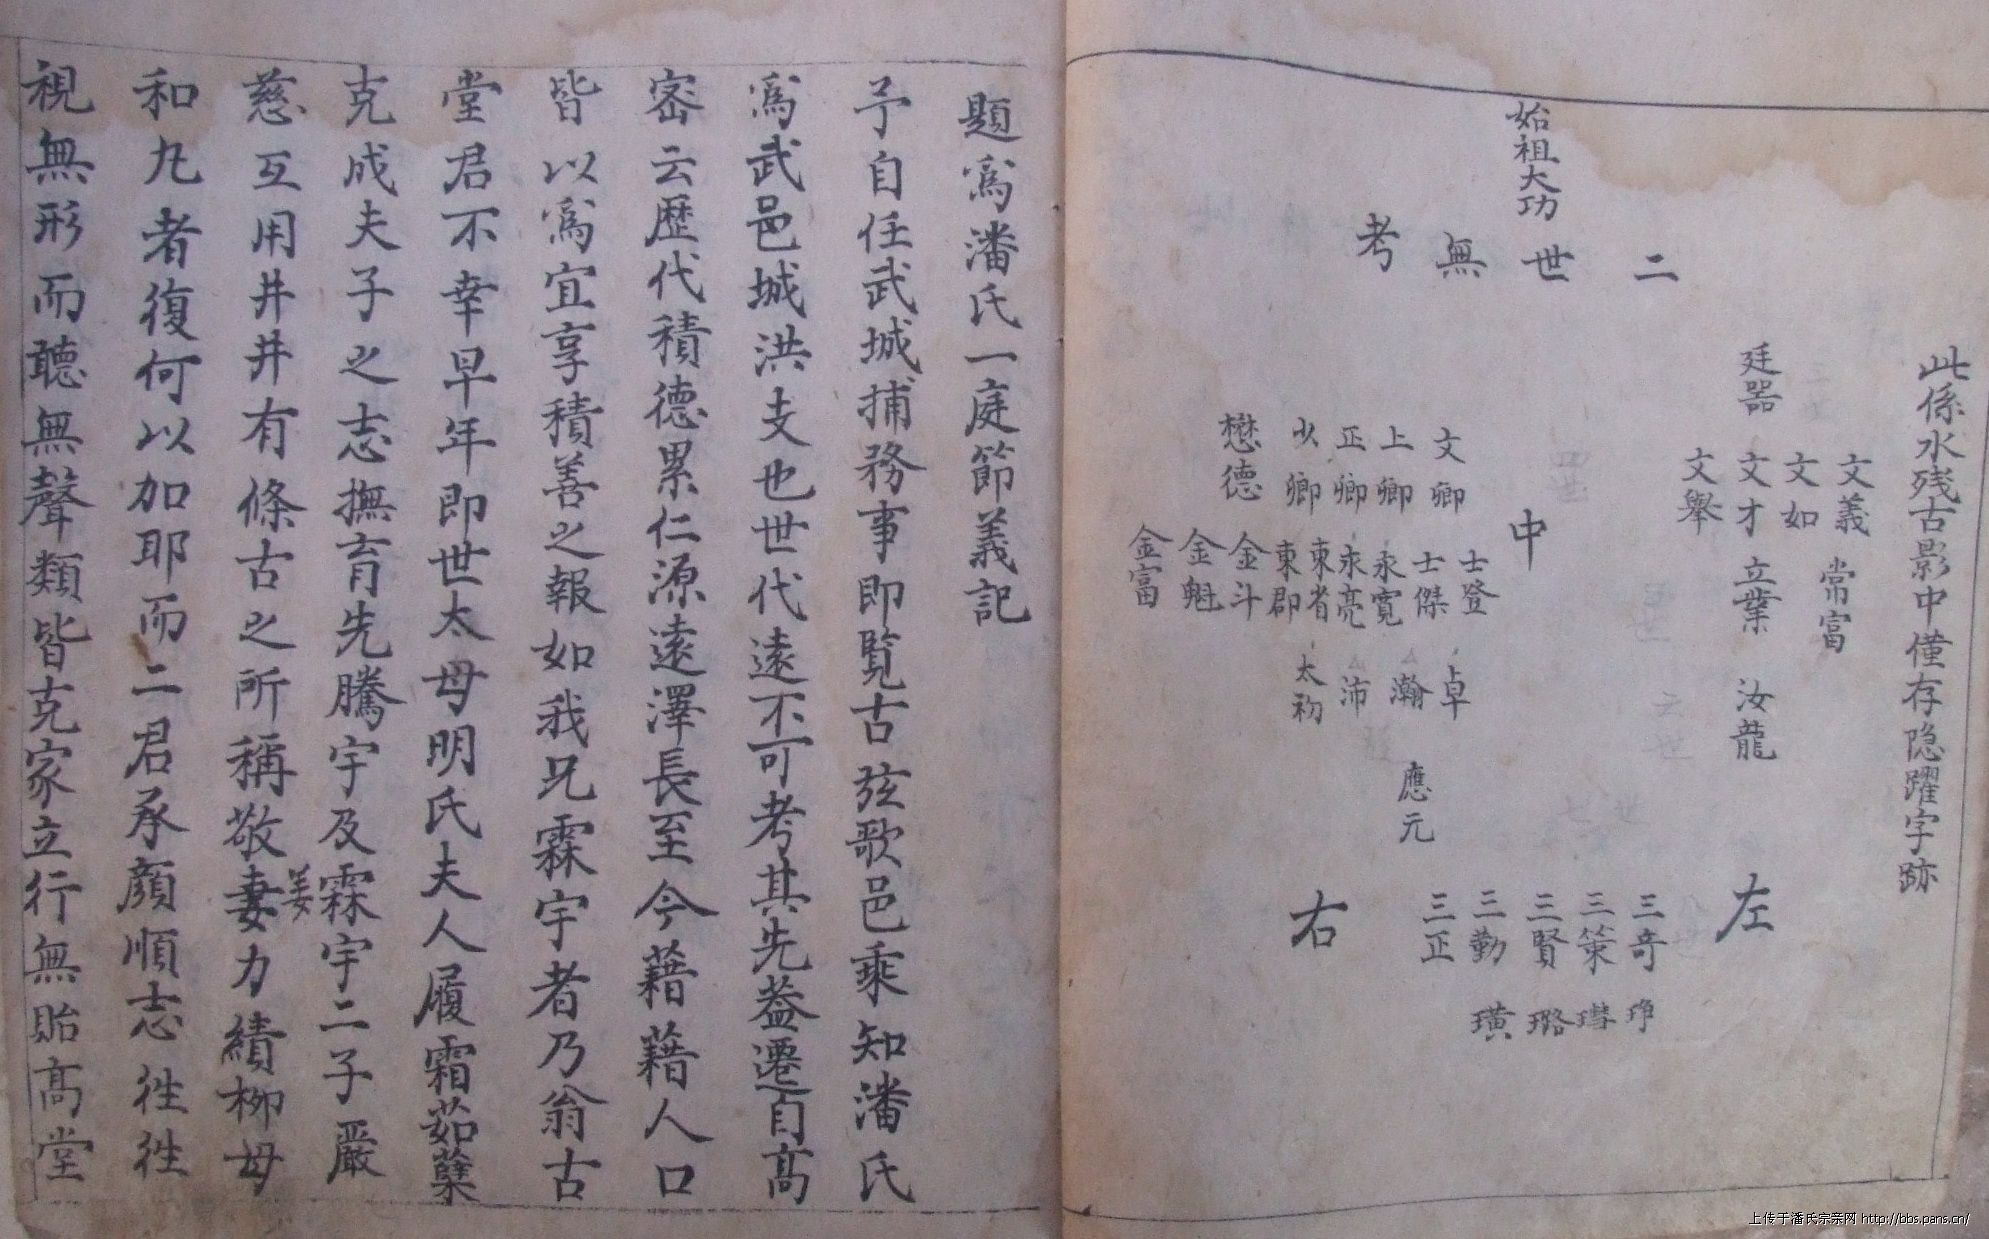 此係水残古影中僅存隐躍字跡
始祖大功
二世無考
廷器
文義 常富
文如
文才 立業 汝龍
文舉
中
文卿 士登 卓
上卿 士傑
正卿 永寬 瀚 應元
少卿 永亮 沛
東省 太初
東郡
懋德 金斗
金魁
金富
左
三奇 琤
三策
三賢 璐
三勤 璜
三正
右
題爲潘氏一庭節義記
予自任武城捕務事即覧古弦歌邑乘知潘氏
爲武邑城洪支也世代遠不可考其先葢遷自高
密云歷代積德累仁源遠澤長至今藉藉人口
皆以爲宜享積善之報如我兄霖宇者乃翁古
堂君不幸早年即世太母明氏夫人履霜茹蘖
克成夫子之志撫育先騰宇及霖宇二子嚴
慈互用井井有條古之所稱敬妻姜力績柳母
和丸者復何以加耶而二君承顏順志徃徃
視無形而聽無聲類皆克家立行無貽高堂
上传于潘氏宗亲网 http://bbs.pans.cn/